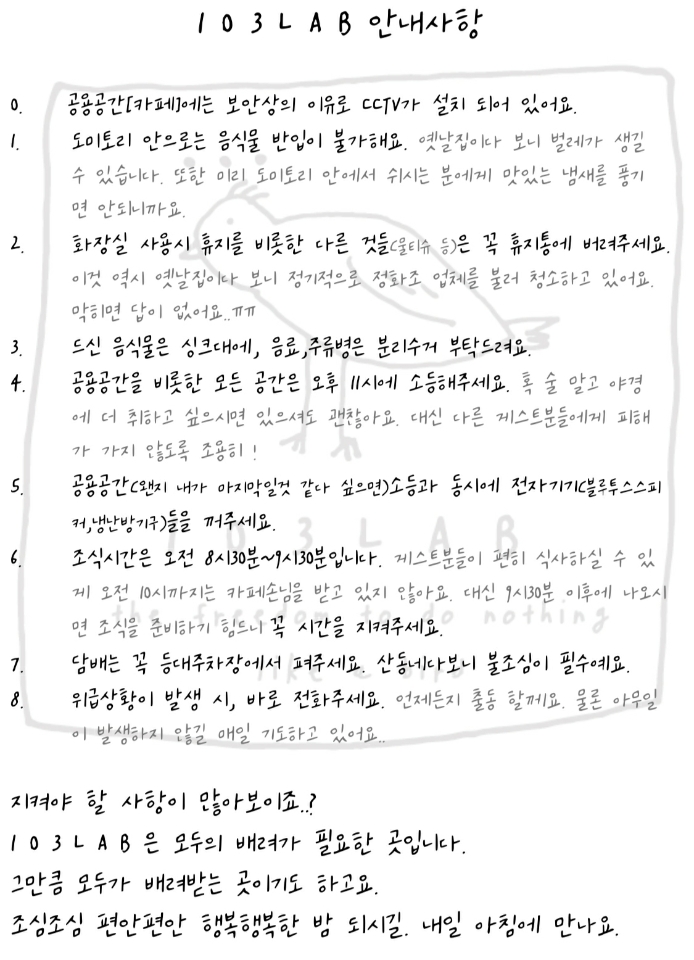 103LAB 안내사항
0. 공용공간[카페]에는 보안상의 이유로 CCTV가 설치 되어 있어요.
1. 도미토리 안으로는 음식물 반입이 불가해요. 옛날집이다 보니 벌레가 생길
수 있습니다. 또한 미리 도미토리 안에서 쉬시는 분에게 맛있는 냄새를 풍기
면 안되니까요.
2. 화장실 사용시 휴지를 비롯한 다른 것들(물티슈 등)은 꼭 휴지통에 버려주세요.
이것 역시 옛날집이다 보니 정기적으로 정화조 업체를 불러 청소하고 있어요.
막히면 답이 없어요..ㅠㅠ
3. 드신 음식물은 싱크대에, 음료,주류병은 분리수거 부탁드려요.
4. 공용공간을 비롯한 모든 공간은 오후 11시에 소등해주세요. 혹 술 말고 야경
에 더 취하고 싶으시면 있으셔도 괜찮아요. 대신 다른 게스트분들에게 피해
가 가지 않도록 조용히 !
5. 공용공간(왠지 내가 마지막일것 같다 싶으면)소등과 동시에 전자기기(블루투스스피
커,냉난방기구)들을 꺼주세요.
6. 조식시간은 오전 8시30분~9시30분입니다. 게스트분들이 편히 식사하실 수 있
게 오전 10시까지는 카페손님을 받고 있지 않아요. 대신 9시30분 이후에 나오시
면 조식을 준비하기 힘드니 꼭 시간을 지켜주세요.
7. 담배는 꼭 등대주차장에서 펴주세요. 산동네다보니 불조심이 필수예요.
8. 위급상황이 발생 시, 바로 전화주세요. 언제든지 출동 할께요. 물론 아무일
이 발생하지 않길 매일 기도하고 있어요..
103LAB
the freedom to do nothing
like a bird
지켜야 할 사항이 많아보이죠..?
103LAB은 모두의 배려가 필요한 곳입니다.
그만큼 모두가 배려받는 곳이기도 하고요.
조심조심 편안편안 행복행복한 밤 되시길. 내일 아침에 만나요.